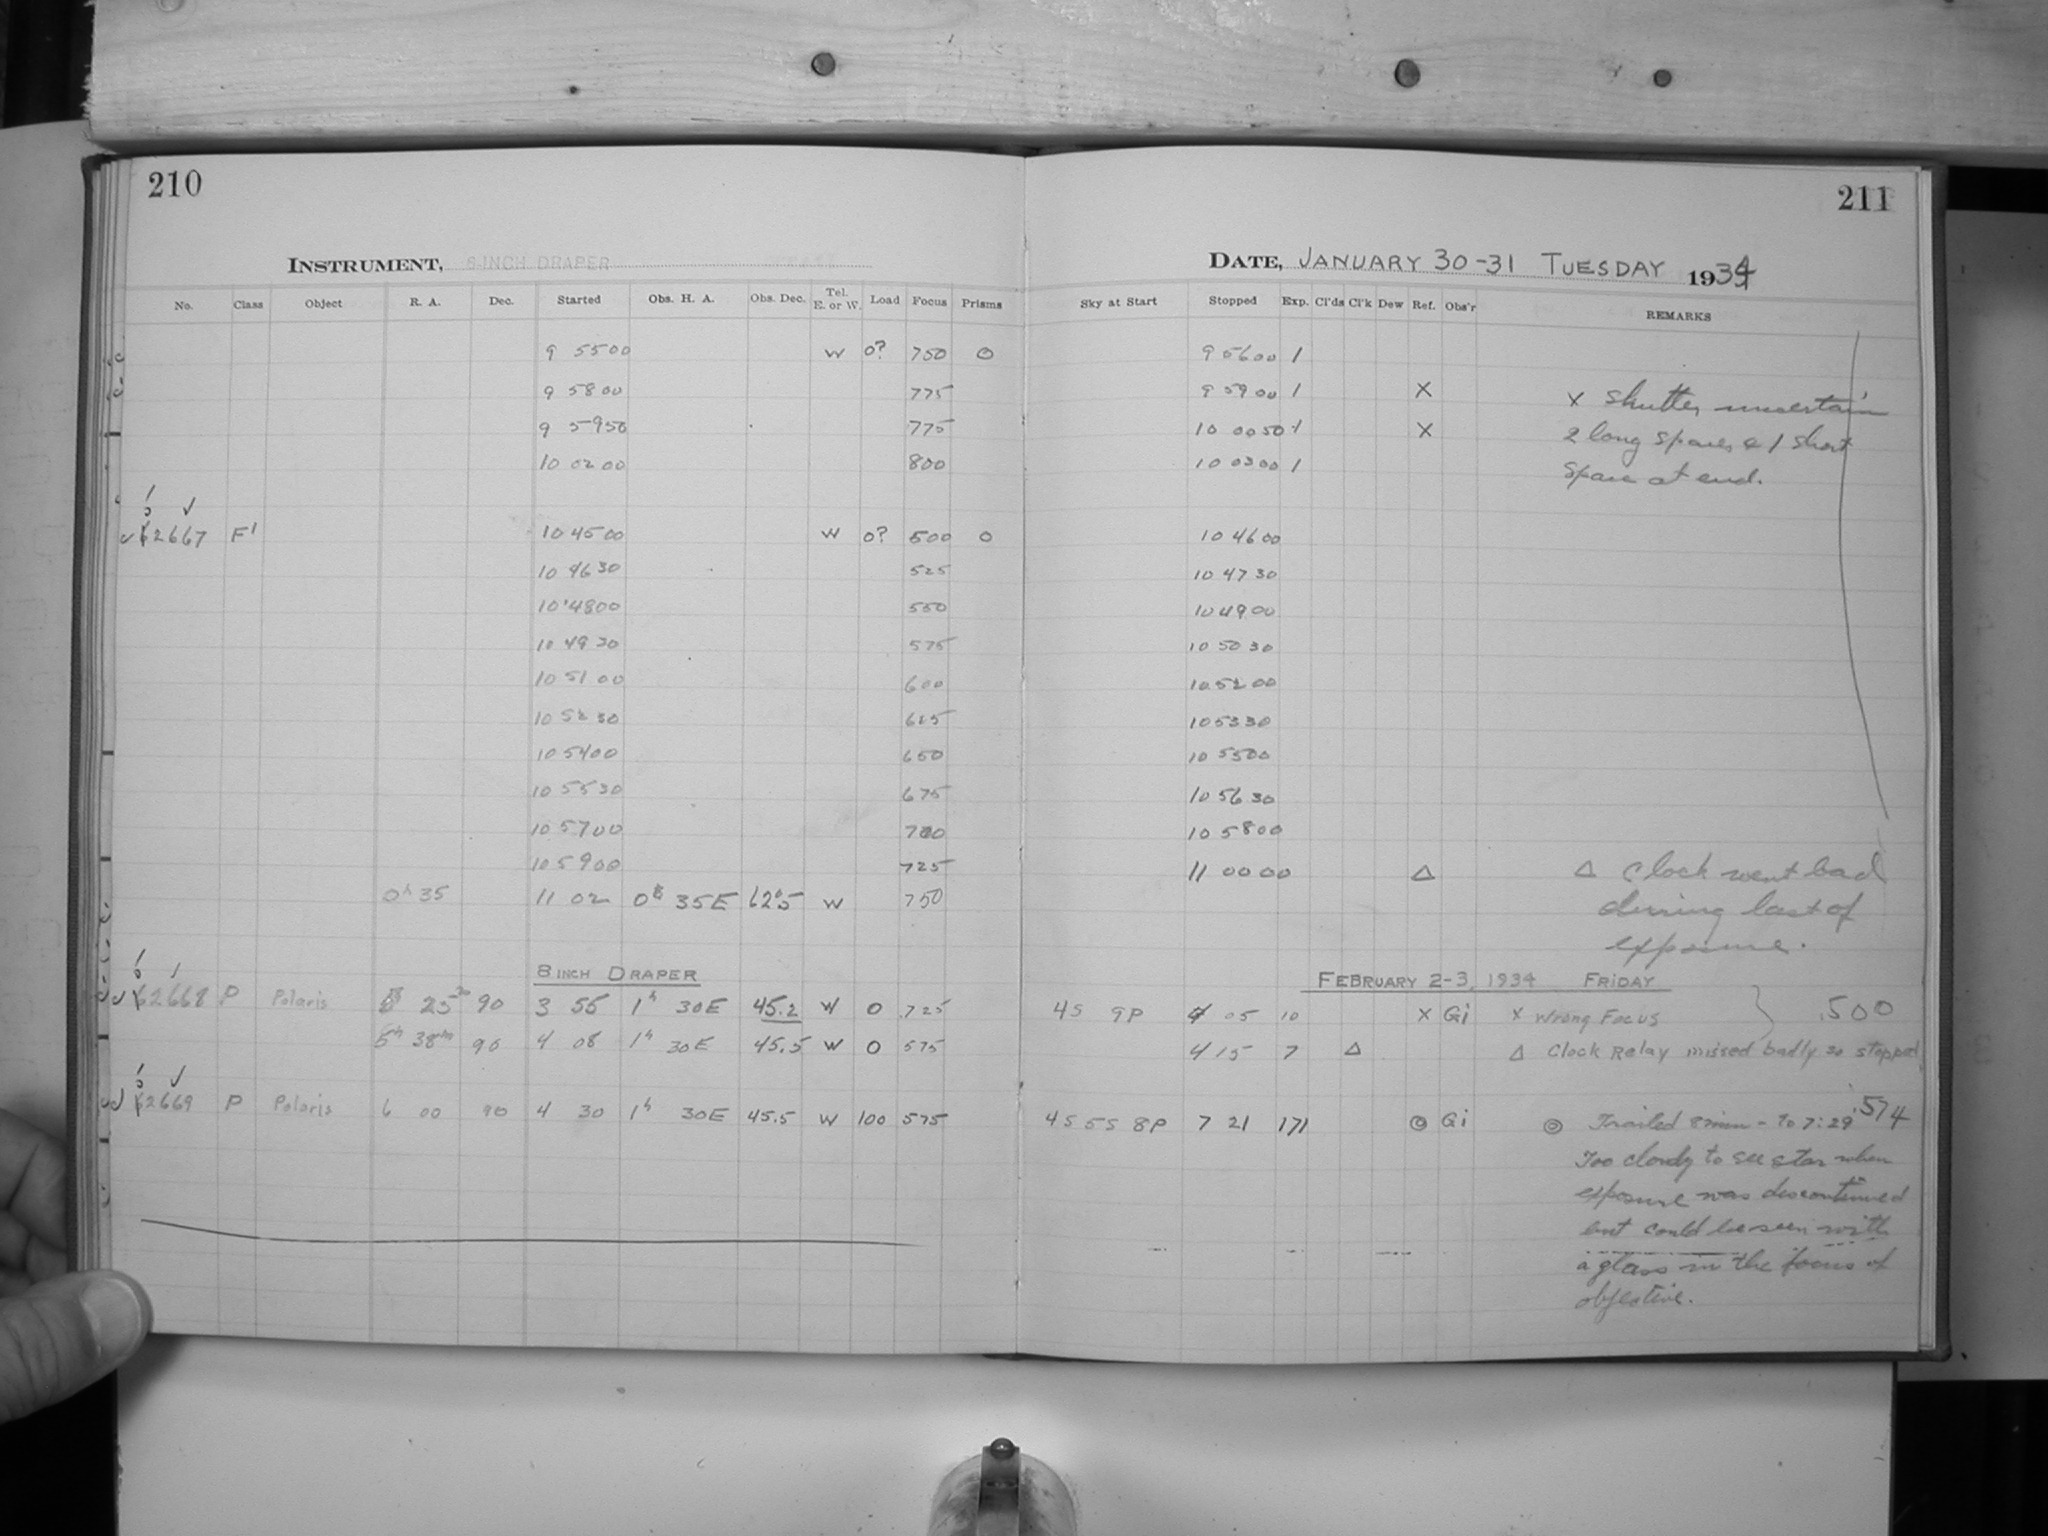 210
INSTRUMENT, 8-INCH DRAPER
No. Class Object R. A. Dec. Started Obs. H. A. Obs. Dec. Tel. E. or W. Load Focus Prisms
9 55 00 W 0? 750 0
9 58 00 775
9 59 50 775
10 02 00 800
2667 F' 10 45 00 W 0? 500 0
10 46 30 525
10 48 00 550
10 49 30 575
10 51 00 600
10 52 30 625
10 54 00 650
10 55 30 675
10 57 00 700
10 59 00 725
0h 35 11 02 0h 35E 62.5 W 750
8 INCH DRAPER
2668 P Polaris 25 90 3 55 1h 30E 45.2 W 0 725
5h 38m 90 4 08 1h 30E 45.5 W 0 575
2669 P Polaris 6 00 90 4 30 1h 30E 45.5 W 100 575
211
DATE, JANUARY 30-31 TUESDAY 1934
Sky at Start Stopped Exp. Cl'ds Cl'k Dew Ref. Obs'r REMARKS
9 56 00 1
9 59 00 1 X X Shutter uncertain
10 00 50 1 X 2 long spaces & 1 short
10 03 00 1 space at end.
10 46 00
10 47 30
10 49 00
10 50 30
10 52 00
10 53 30
10 55 00
10 56 30
10 58 00
11 00 00 Δ Δ Clock went bad
during last of
exposure.
FEBRUARY 2-3, 1934 FRIDAY
4S 9P 4 05 10 X Gi X Wrong Focus .500
4 15 7 Δ Δ Clock Relay missed badly so stopped
4S 5S 8P 7 21 171 ◎ Gi ◎ Trailed 8 min - to 7:29 .574
Too cloudy to see star when
exposure was discontinued
but could be seen with
a glass in the focus of
objective.